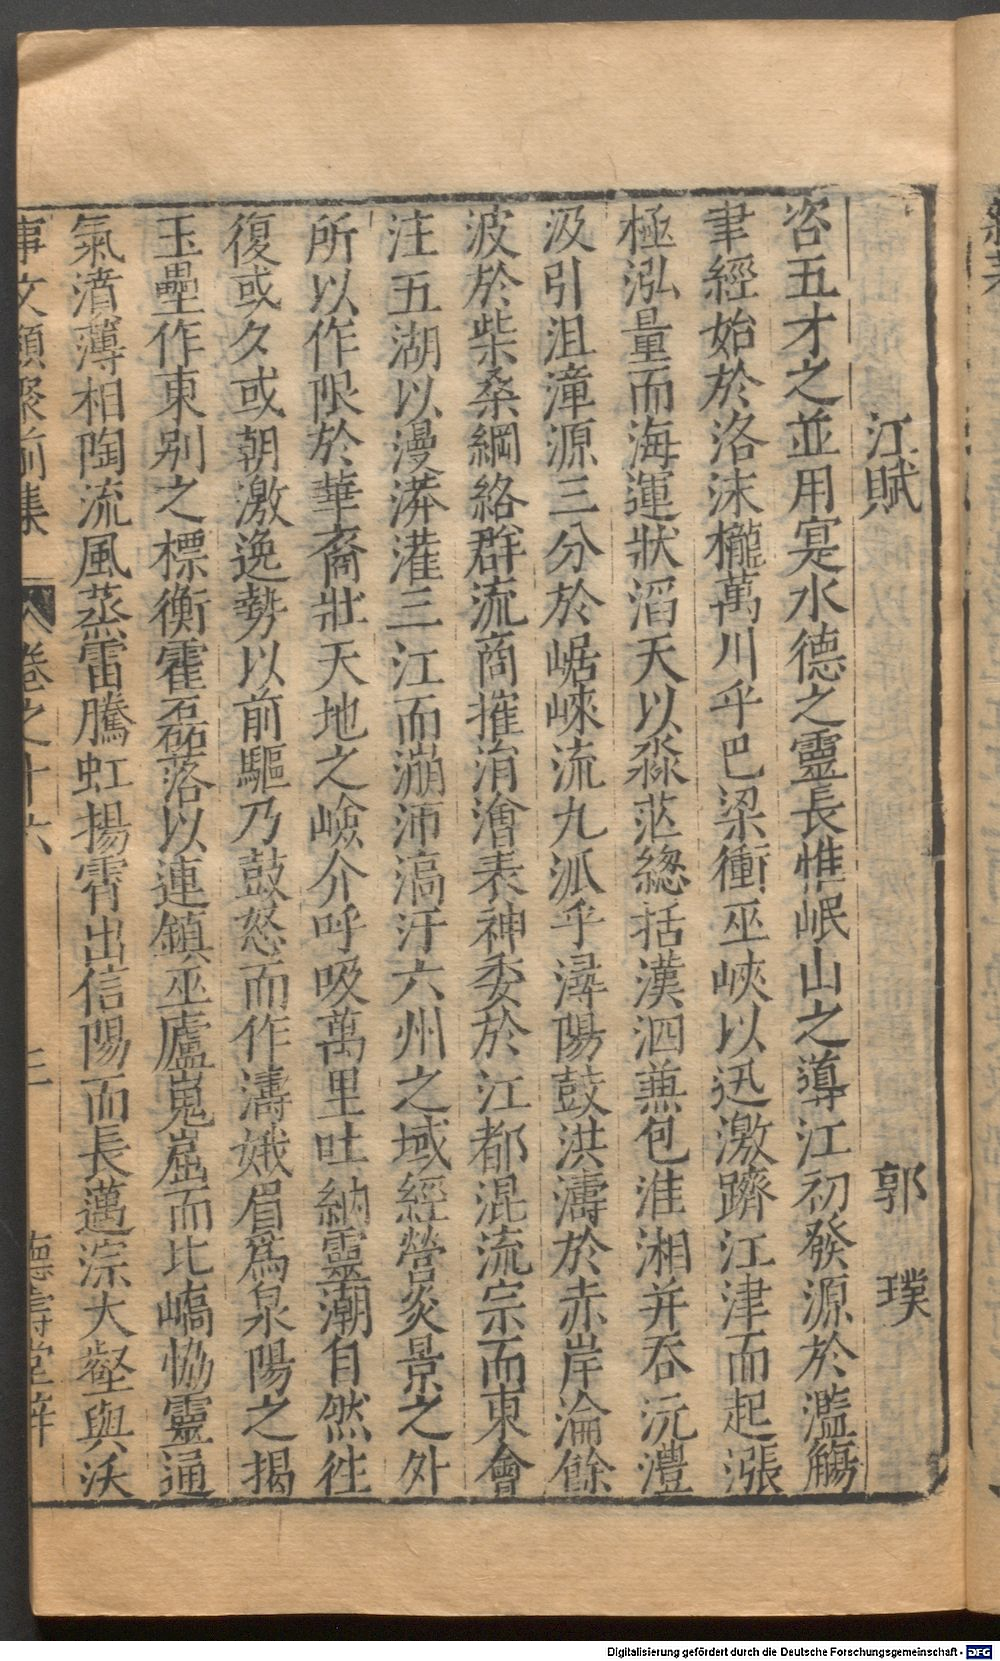 江賦 郭璞
咨五才之並用寔水德之靈長惟岷山之導江初發源於濫觴
聿經始於洛沬櫳萬川乎巴梁衝巫峽以迅激躋江津而起漲
極泓量而海運狀滔天以淼茫緫括漢泗蕪包淮湘并吞沅澧
汲引沮漳源三分於崌崍流九派乎潯陽鼓洪濤於赤岸淪餘
波於柴桑綱絡群流商搉涓澮表神委於江都混流宗而東會
注五湖以漫漭灌三江而漰沛滈汗六州之域經營炎景之外
所以作限於華裔壯天地之嶮介呼吸萬里吐納靈潮自然徃
復或夕或朝激逸勢以前驅乃鼓怒而作濤娥眉爲泉陽之揭
玉壘作東别之標衡霍磊落以連鎮巫廬嵬崫而比嶠恊靈通
氣濆薄相陶流風蒸雷騰虹揚霄出信陽而長邁淙大壑與沃
事文類聚前集 卷之十六 三 德壽堂梓
Digitalisierung gefördert durch die Deutsche Forschungsgemeinschaft - DFG